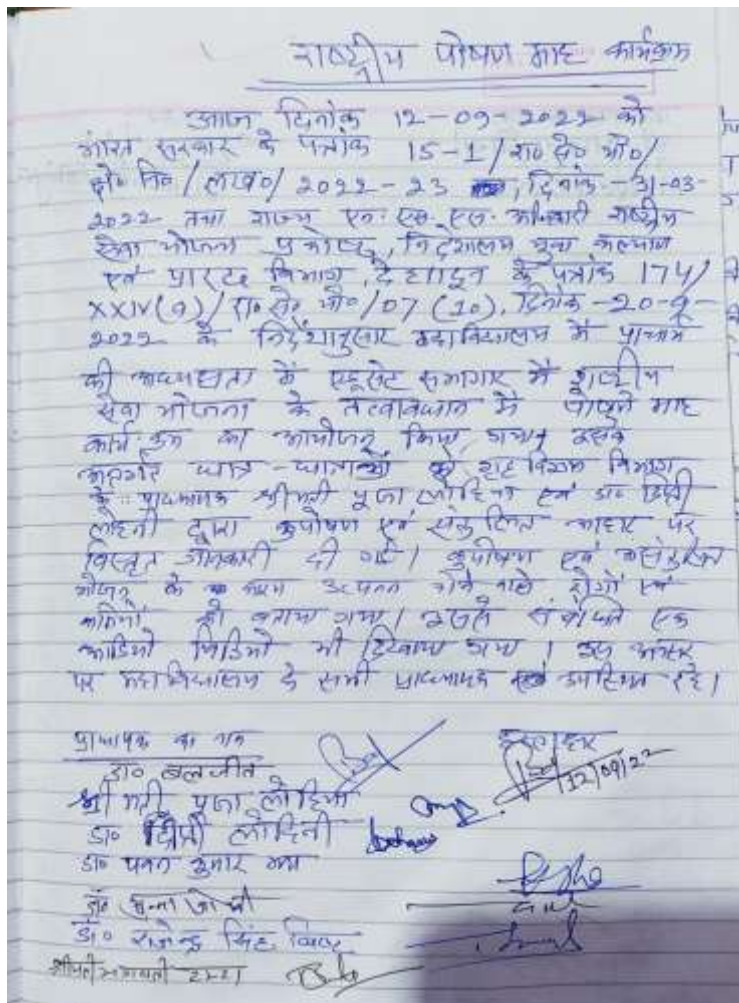 राष्ट्रीय पोषण माह कार्यक्रम
आज दिनांक 12-09-2022 को
भारत सरकार के पत्रांक 15-1/रा० से० यो०/
क्षे० नि०/लख०/2022-23, दिनांक-31-03-
2022 तथा राज्य एन. एस. एस. अधिकारी राष्ट्रीय
सेवा योजना प्रकोष्ठ, निदेशालय युवा कल्याण
एवं प्रा० र० द० विभाग, देहरादून के पत्रांक 174/
XXIV(9)/रा० से० यो०/07(10), दिनांक-20-
2022 के निर्देशानुसार महाविद्यालय में प्राचार्य
की अध्यक्षता में एडूसेट सभागार में राष्ट्रीय
सेवा योजना के तत्वावधान में पोषण माह
कार्यक्रम का आयोजन किया गया। इसके
अन्तर्गत छात्र-छात्राओं को गृह विज्ञान विभाग
के प्राध्यापक श्रीमती पूजा लोहिया एवं डा० डिम्पी
लोहनी द्वारा कुपोषण एवं संतुलित आहार पर
विस्तृत जानकारी दी गई। कुपोषण एवं असंतुलित
भोजन के कारण उत्पन्न होने वाले रोगों एवं
को बताया गया। इससे संबंधित एक
आडियो विडियो भी दिखाया गया। इस अवसर
पर महाविद्यालय के सभी प्राध्यापक उपस्थित रहे।
प्राध्यापक का नाम
हस्ताक्षर
डा० बलजीत
12/09/22
श्रीमती पूजा लोहिया
डा० लोहिनी
डा० पवन कुमार
डॉ० जोशी
डॉ० राजेन्द्र सिंह
श्रीमती